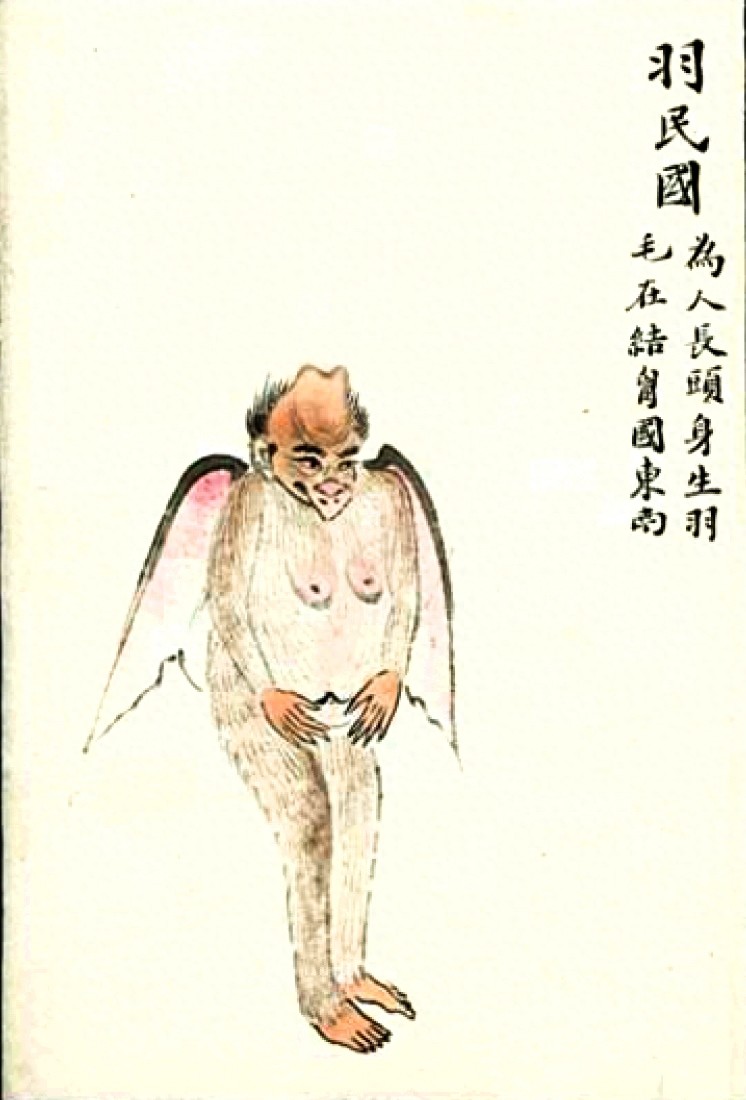 羽民國
為人長頭身生羽
毛在結胷國東南